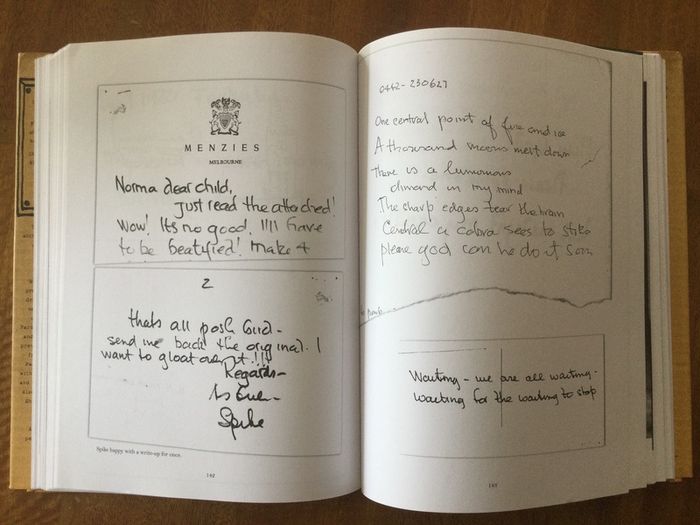 MENZIES
MELBOURNE
Norma dear child,
just read the attached!
Wow! Its no good. I'll have
to be beatified! Make 4
2
thats all posh
send me back the original. I
want to gloat over it!!!
Regards-
As Ever-
Spike
Spike happy with a write-up for once.
142
0442-230627
One central point of fire and ice
A thousand moons melt down
there is a lumonous
dimand in my mind
The sharp edges tear the brain
Central a cobra sees to
please god can he do it soon
Waiting - we are all waiting -
waiting for the waiting to stop
143